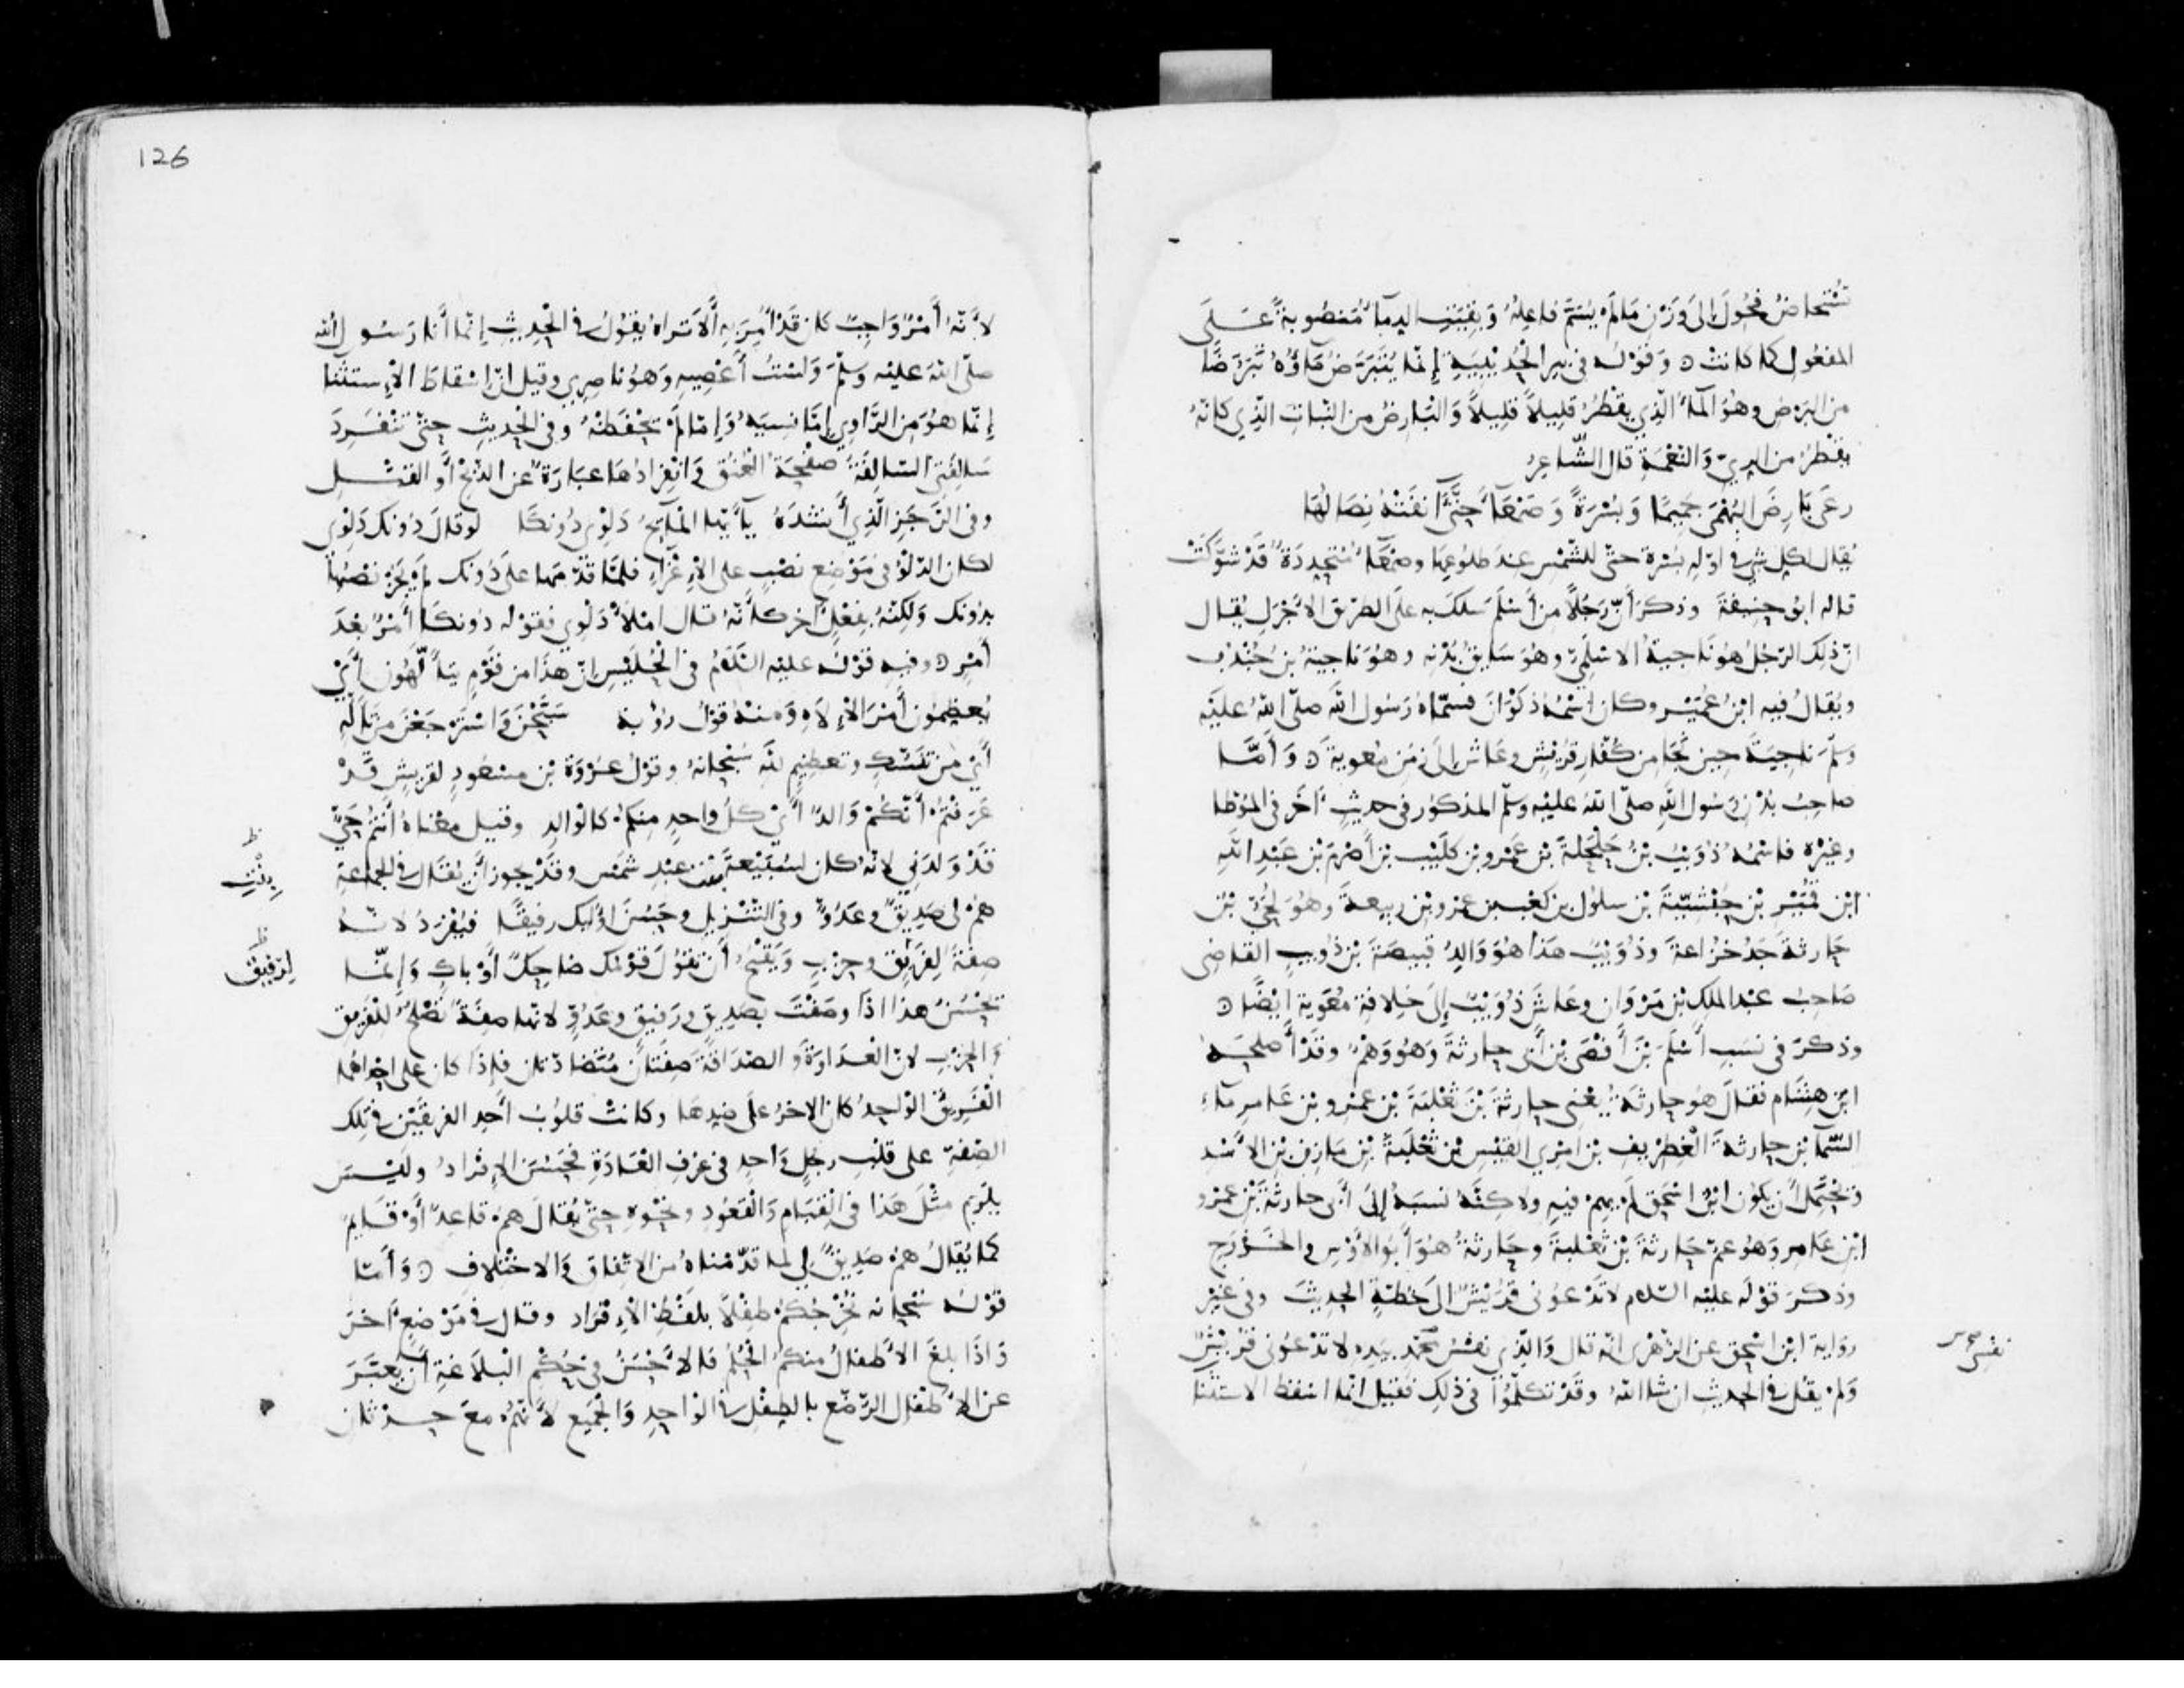 تُسْتحاضُ فحُوّلَ إلى وَزْن مَا لم يُسَمَّ فاعِلهُ وَبَقِيَتِ الدِمآءُ مَنصُوبةً عَلَى
المفعُول كما كانتْ ۞ وَقوْلُه في بير الحُدَيْبيَةِ إنّما يُتبَرَّضُ مَاؤُهُ تبَرّضًا
من البَرَض وهُوَ المَآءُ الّذِي يقْطُرُ قلِيلاً قلِيلاً وَالبَارِضُ من النّباتِ الّذِي كانّهُ
يقْطُرُ من الرِيّ وَالنّعْمَةِ قال الشّاعِرُ
رعَى بَارِضَ البُهْمَى جَمِيمًا وَبُسْرَةً وَصَمْعَآ حَتَّى آنفَتْهُ نِصَالُهَا
يُقال لكل شي في اوّلِهِ بُسْرَة حتّى للشّمْس عِندَ طلوُعِهَا وصَمْعَآءُ مُتحَدِدَةٌ قَدْ شوَّكَتْ
قاله ابُو حنِيفةَ وذكرَ أنّ رَجُلاً من أَسْلَمَ سَلكَ به علَى الطريق الاَجْرَلِ يُقال
انّ ذلِك الرّجُلُ هُوَ ناجيةُ الاسْلمِيّ وهُوَ سَايقُ بُدْنِه وهُوَ ناجيةُ بنُ جُنْدُب
ويُقالُ فيه ابْنُ عُمَيْرٍ وكان اسْمُهُ ذكوْانَ فسمّاهُ رَسُول الله صلّى اللهُ عليْه
وسلّمَ ناجِيَةَ حِينَ نجَا مِن كُفّارِ قُرَيْشٍ وعَاشَ إلَى زمَن مُعوية ۞ وَأمَّا
صاحِبُ بُدْنِ رَسُول اللهِ صلّى اللهُ عليْه وسلّم المذكوُر في حديثٍ آخَر في المُوَطا
وغيْرِه فاسْمُهُ ذُؤَيْبُ بْنُ حَلْحَلةَ بْنِ عَمْرو بْن كلَيْب بْن أصْرَمَ بْن عَبْدِ اللهِ
ابْن قُمَيْرِ بْن حُبْشِيّةَ بْن سلوُل بْن كعْب بن عمْرو بْن ربيعةَ وهُوَ لحَيّ بْن
حَارثةَ جَدُ خزُاعةَ وذُؤيْبٌ هَذا هُوَ وَالِدُ قبِيصَةَ بْن ذُؤيبٍ القاضِي
صَاحِبُ عبْدِ الملك بْن مَرْوَان وعَاشَ ذُؤَيْبٌ إلَى خِلافةِ مُعَوية ايْضًا ۞
وذكرَ في نسَبِ أَسْلَمَ بْنَ أَفْصَى بْن أَبي حارثةَ وَهُوَ وَهْمٌ وقَدْ أصْلحَه
ابْن هِشَام فقالَ هُوَ حارثةُ يعْني حارثةَ بْنَ ثعْلبَةَ بْن عمْرو بْن عَامِر مآءِ
السّمآ بْن حارثةَ الْغِطْريفِ بْن امْرِي القيْسِ بْن ثَعْلَبَةَ بْن مَازِن بْن الاَسْدِ
وَيحْتَمِلُ أن يكوُن ابْنُ اسْحَق لَم يهِمْ فيهِ ولاكنّهُ نَسَبَهُ إلَى أَبي حارثَةَ بْن عمْرو
ابْن عَامِر وَهُوَ عمّ حَارثةَ بْن ثَعْلبةَ وحَارثةُ هُوَ أَبُو الاَوْسِ والخَزْرَجِ
وذكرَ قوْلَه عليْه السّلام لا تَدْعُوني قُرَيْشٌ الَى خُطّةٍ الحدِيثَ وفي غيْر
رِوَاية ابْن اسْحق عن الزّهْرِى انّهُ قال وَالّذِي نفْسُ محمّد بيَدِه لا تَدْعُوني قُرَيْشٌ
وَلم يقُل في الحدِيثِ ان شا اللهُ وقَدْ تكلّمُوا في ذلِكَ فقِيل انّما اسْقط الاسْتثْنا
نفسى
126
لأَنّهُ أَمْرٌ وَاجِبٌ كان قَدْ أُمِرَ بهِ أَلاَ تَراهُ يقُولُ في الْحدِيثِ إنّما أَنا رَسُول الله
صلّى اللهُ عليْه وسلّمَ وَلسْتُ أَعْصِيهِ وَهُوَ ناصِرِي وقيل انّ اسْقاطَ الاِسْتثنا
إنّما هُوَ مِن الرَّاوِي إمّا نسِيَهُ وَإمّا لَم يَحْفظْهُ وفي الْحدِيثِ حتّى تنْفرِدَ
سَالِفَتي السّالِفَةُ صفْحَةُ العُنُق وَانْفِرادُهَا عبَارَةٌ عن الذّبْحِ أَو القتْلِ
وفي الرّجَزِ الّذِي أَنشدَهُ يآ أَيّها المَايِحُ دَلْوِي دُونكَا لوْ قالَ دُونك دَلْوِى
لكان الدّلْوُ في مَوْضِع نصْبٍ على الاِغْرَآءِ فلمّا قدّمَها على دُونك لم يَجُزْ نصْبُهَا
بدُونك وَلكِنّهُ بفِعْلٍ آخر كأَنّهُ قال امْلأْ دَلْوِي فقوْله دُونكا أَمْرٌ بعْدَ
أَمْرٍ ۞ وفيه قوْلُه عليْه السّلامُ في الْحُلَيْسِ انّ هذَا من قوْمٍ يتأَلّهُون أَيْ
يُعظِمُون أَمْرَ الاِلاَهِ وَمنْهُ قوْلُ رؤْبة سَبّحْنَ وَاسْتَرْجَعْنَ مِن تَأَلّهِ
أَيْ مِن تنسُّكٍ وتعظيمٍ لله سُبْحَانهُ وقوْلُ عُرْوَةَ بْن مسْعُودٍ لقرَيش قَدْ
عَرَفتُم أَنّكُمْ وَالدٌ أَيْ كلُّ وَاحدٍ مِنكم كالْوالِدِ وقيل معْناهُ أَنْتُم حَيٌّ
قَدْ وَلدَني لانّهُ كان لسُبَيْعةَ بنت عبْدِ شمْس وقَدْ يجوز أَن يُقال في الجماعةِ
بِنْتِ
هُمْ لي صَدِيقٌ وعَدُوٌّ وفي التّنْزيل وحَسُنَ اوُليك رفيقًا فيُفْرَدُ لانّهُ
صِفةٌ لِفَرِيقٍ وحِزْبٍ وَيَقْبُحُ أَن تقُولَ قوْمُك ضاحِكٌ أَوْ باكٍ وَإنّما
لِرَفيقٍ
يَحْسُنُ هذا اذَا وصَفْتَ بصدِيقٍ ورَفيقٍ وعَدُوٍّ لانّها صِفَةٌ تصْلُحُ لِلْفَرِيق
وَالحِزْبِ لانّ الْعَدَاوَةَ وَالصّدَاقةَ صِفَتَانِ مُتَضادّتان فإذَا كان على احْدَاهُما
الْفَرِيقُ الْوَاحِدُ كان الاخرُ على ضِدِهَا وكانتْ قلوُبُ أَحَدِ الفريقَيْن في تِلك
الصّفةِ على قلْبِ رجُلٍ وَاحدٍ في عُرْفِ الْعَادَةِ فحَسُنَ الاِفْرَادُ وليْسَ
يلْزَم مثْلُ هَذا في الْقِيَامِ وَالْقُعُودِ ونحْوِهِ حتّى يُقال هُمْ قاعِدٌ أَوْ قَايِمٌ
كما يُقالُ هُمْ صَدِيقٌ لي لما قدّمْناهُ من الاتِّفاقِ وَالاخْتِلافِ ۞ وَأَمّا
قوْلُه سُبْحَانه نُخْرِجُكُمْ طِفْلاً بلفْظِ الاِفْرَاد وقال في مَوْضِعٍ آخَرَ
وَاذَا بلغَ الاَطْفالُ منكُمُ الْحُلُمَ فالاَحْسَنُ في حُكْم الْبلاَغةِ أَن يعبَّرَ
عن الاَطْفالِ الرُّضّعِ بالطِفْلِ في الْوَاحِدِ وَالْجَمِيعِ لأَنّهُم معَ حِدْثَانِ